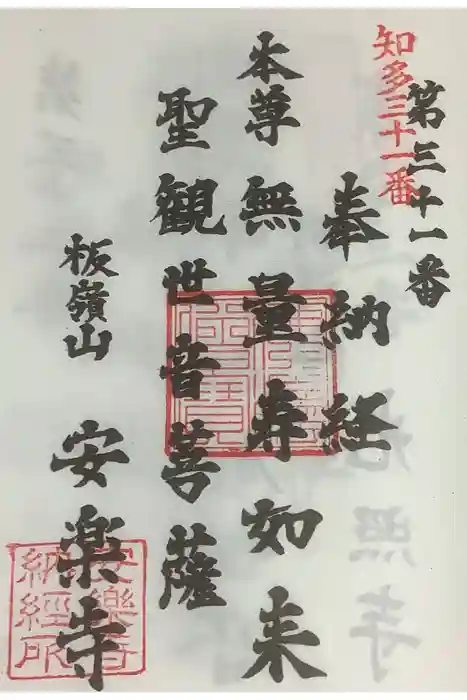 知多三十一番
第三十一番
奉納経
本尊無量寿如来
聖観世音菩薩
板嶺山 安楽寺
安樂寺
納經所